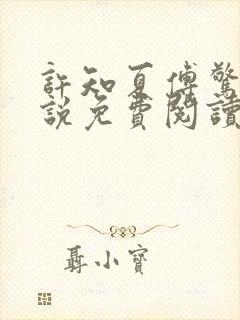 許知夏傅驚
說免費閱讀
聶小寶